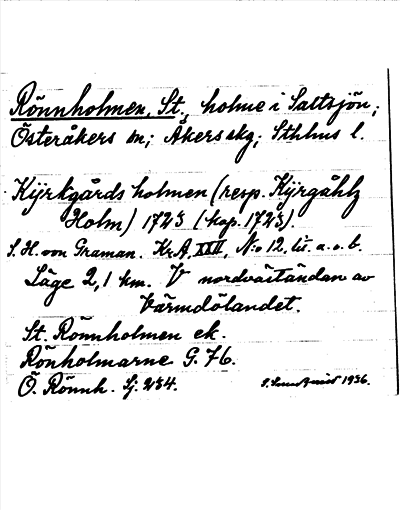 Rönnholmen, St., holme i Saltsjön;
Österåkers sn; Åkers skg; Sthlms l.
Kijrkgårds holmen (resp. Kijrgåhlz
Holm) 1725 (kop. 1725).
S. H. von Graman. KrA, XXII, N:o 12, lit. a. o. b.
Läge 2,1 km. V nordväständan av
Värmdölandet.
St. Rönnholmen ek.
Rönholmarne G. 76.
Ö. Rönnh. Sj. 254.
1936.